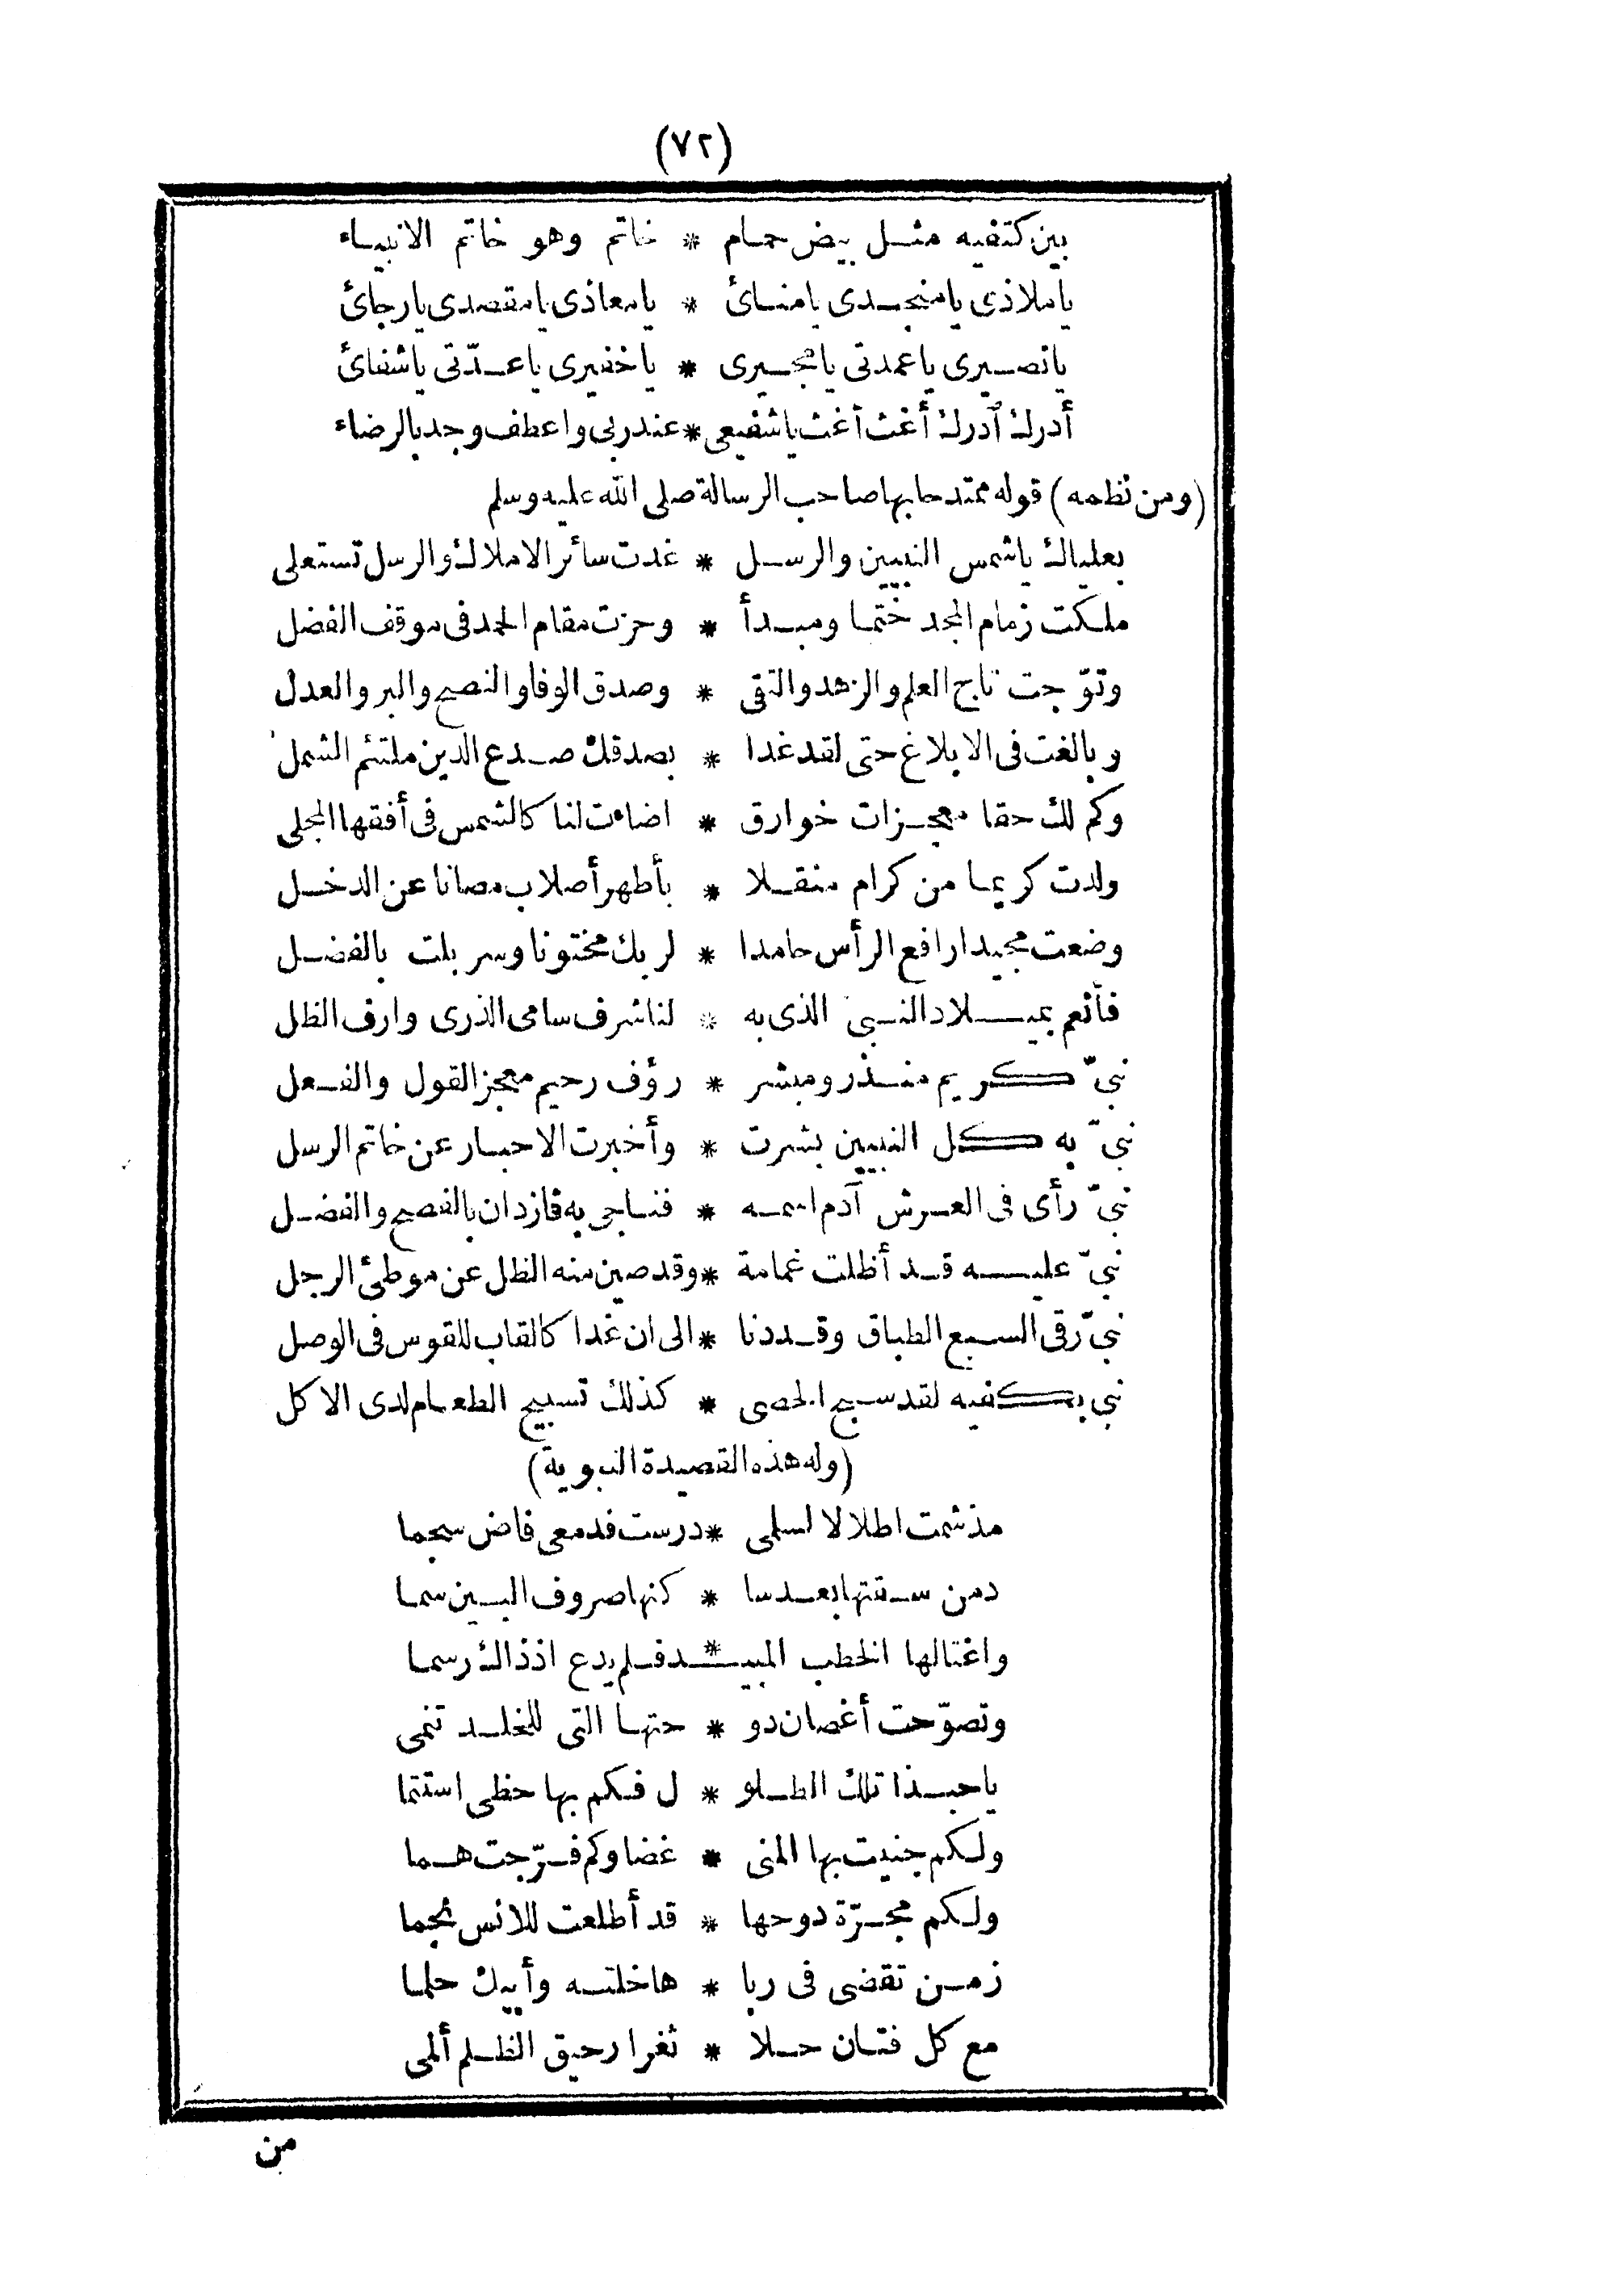 (٧٢)
بين كتفيه مثل بيض حمام * خاتم وهو خاتم الانبياء
ياملاذى يامنجدى يامنائ * يامعاذى يامقصدى يارجائ
يانصيرى ياعمدتى يامجيرى * ياخفيرى ياعدّتى ياشفائ
أدرك أدرك أغث أغث ياشفيعى * عند ربى واعطف وجد بالرضاء
(ومن نظمه) قوله ممتدحا بها صاحب الرسالة صلى الله عليه وسلم
بعلياك ياشمس النبيين والرسل * غدت سائر الاملاك والرسل تستعلى
ملكت زمام المجد ختما ومبدأ * وحزت مقام الحمد فى موقف الفضل
وتوّجت تاج العلم والزهد والتقى * وصدق الوفا والنصح والبر والعدل
وبالغت فى الابلاغ حتى لقد غدا * بصدقك صدع الدين ملتئم الشمل
وكم لك حقا معجزات خوارق * اضاءت لنا كالشمس فى أفقها المجلى
ولدت كريما من كرام منقلا * بأطهر أصلاب مصانا عن الدخل
وضعت مجيدا رافع الرأس حامدا * لربك مختونا وسربلت بالفضل
فأنعم بميلاد النبى الذى به * لنا شرف سامى الذرى وارف الظل
نبىّ كريم منذر ومبشر * رؤف رحيم معجز القول والفعل
نبىّ به كل النبيين بشرت * وأخبرت الاحبار عن خاتم الرسل
نبىّ رأى فى العرش آدم اسمه * فناجى به فازدان بالفصح والفضل
نبىّ عليه قد أظلت غمامة * وقد صين منه الظل عن موطئ الرجل
نبىّ رقى السبع الطباق وقد دنا * الى ان غدا كالقاب للقوس فى الوصل
نبى بكفيه لقد سبح الحصى * كذلك تسبيح الطعام لدى الاكل
(وله هذه القصيدة النبوية)
مذ شمت اطلالا لسلمى * درست فدمعى فاض سجما
دمن سقتها بعد سا * كنها صروف البين سما
واغتالها الخطب المبيد * فلم يدع اذ ذاك رسما
وتصوّحت أغصان دو * حتها التى للخلد تنمى
ياحبذا تلك الطلو * ل فكم بها حظى استتما
ولكم جنيت بها المنى * غضا وكم فرّجت هما
ولكم مجرّة دوحها * قد أطلعت للانس نجما
زمن تقضى فى ربا * ها خلته وأبيك حلما
مع كل فتان حلا * ثغرا رحيق الظلم ألمى
من